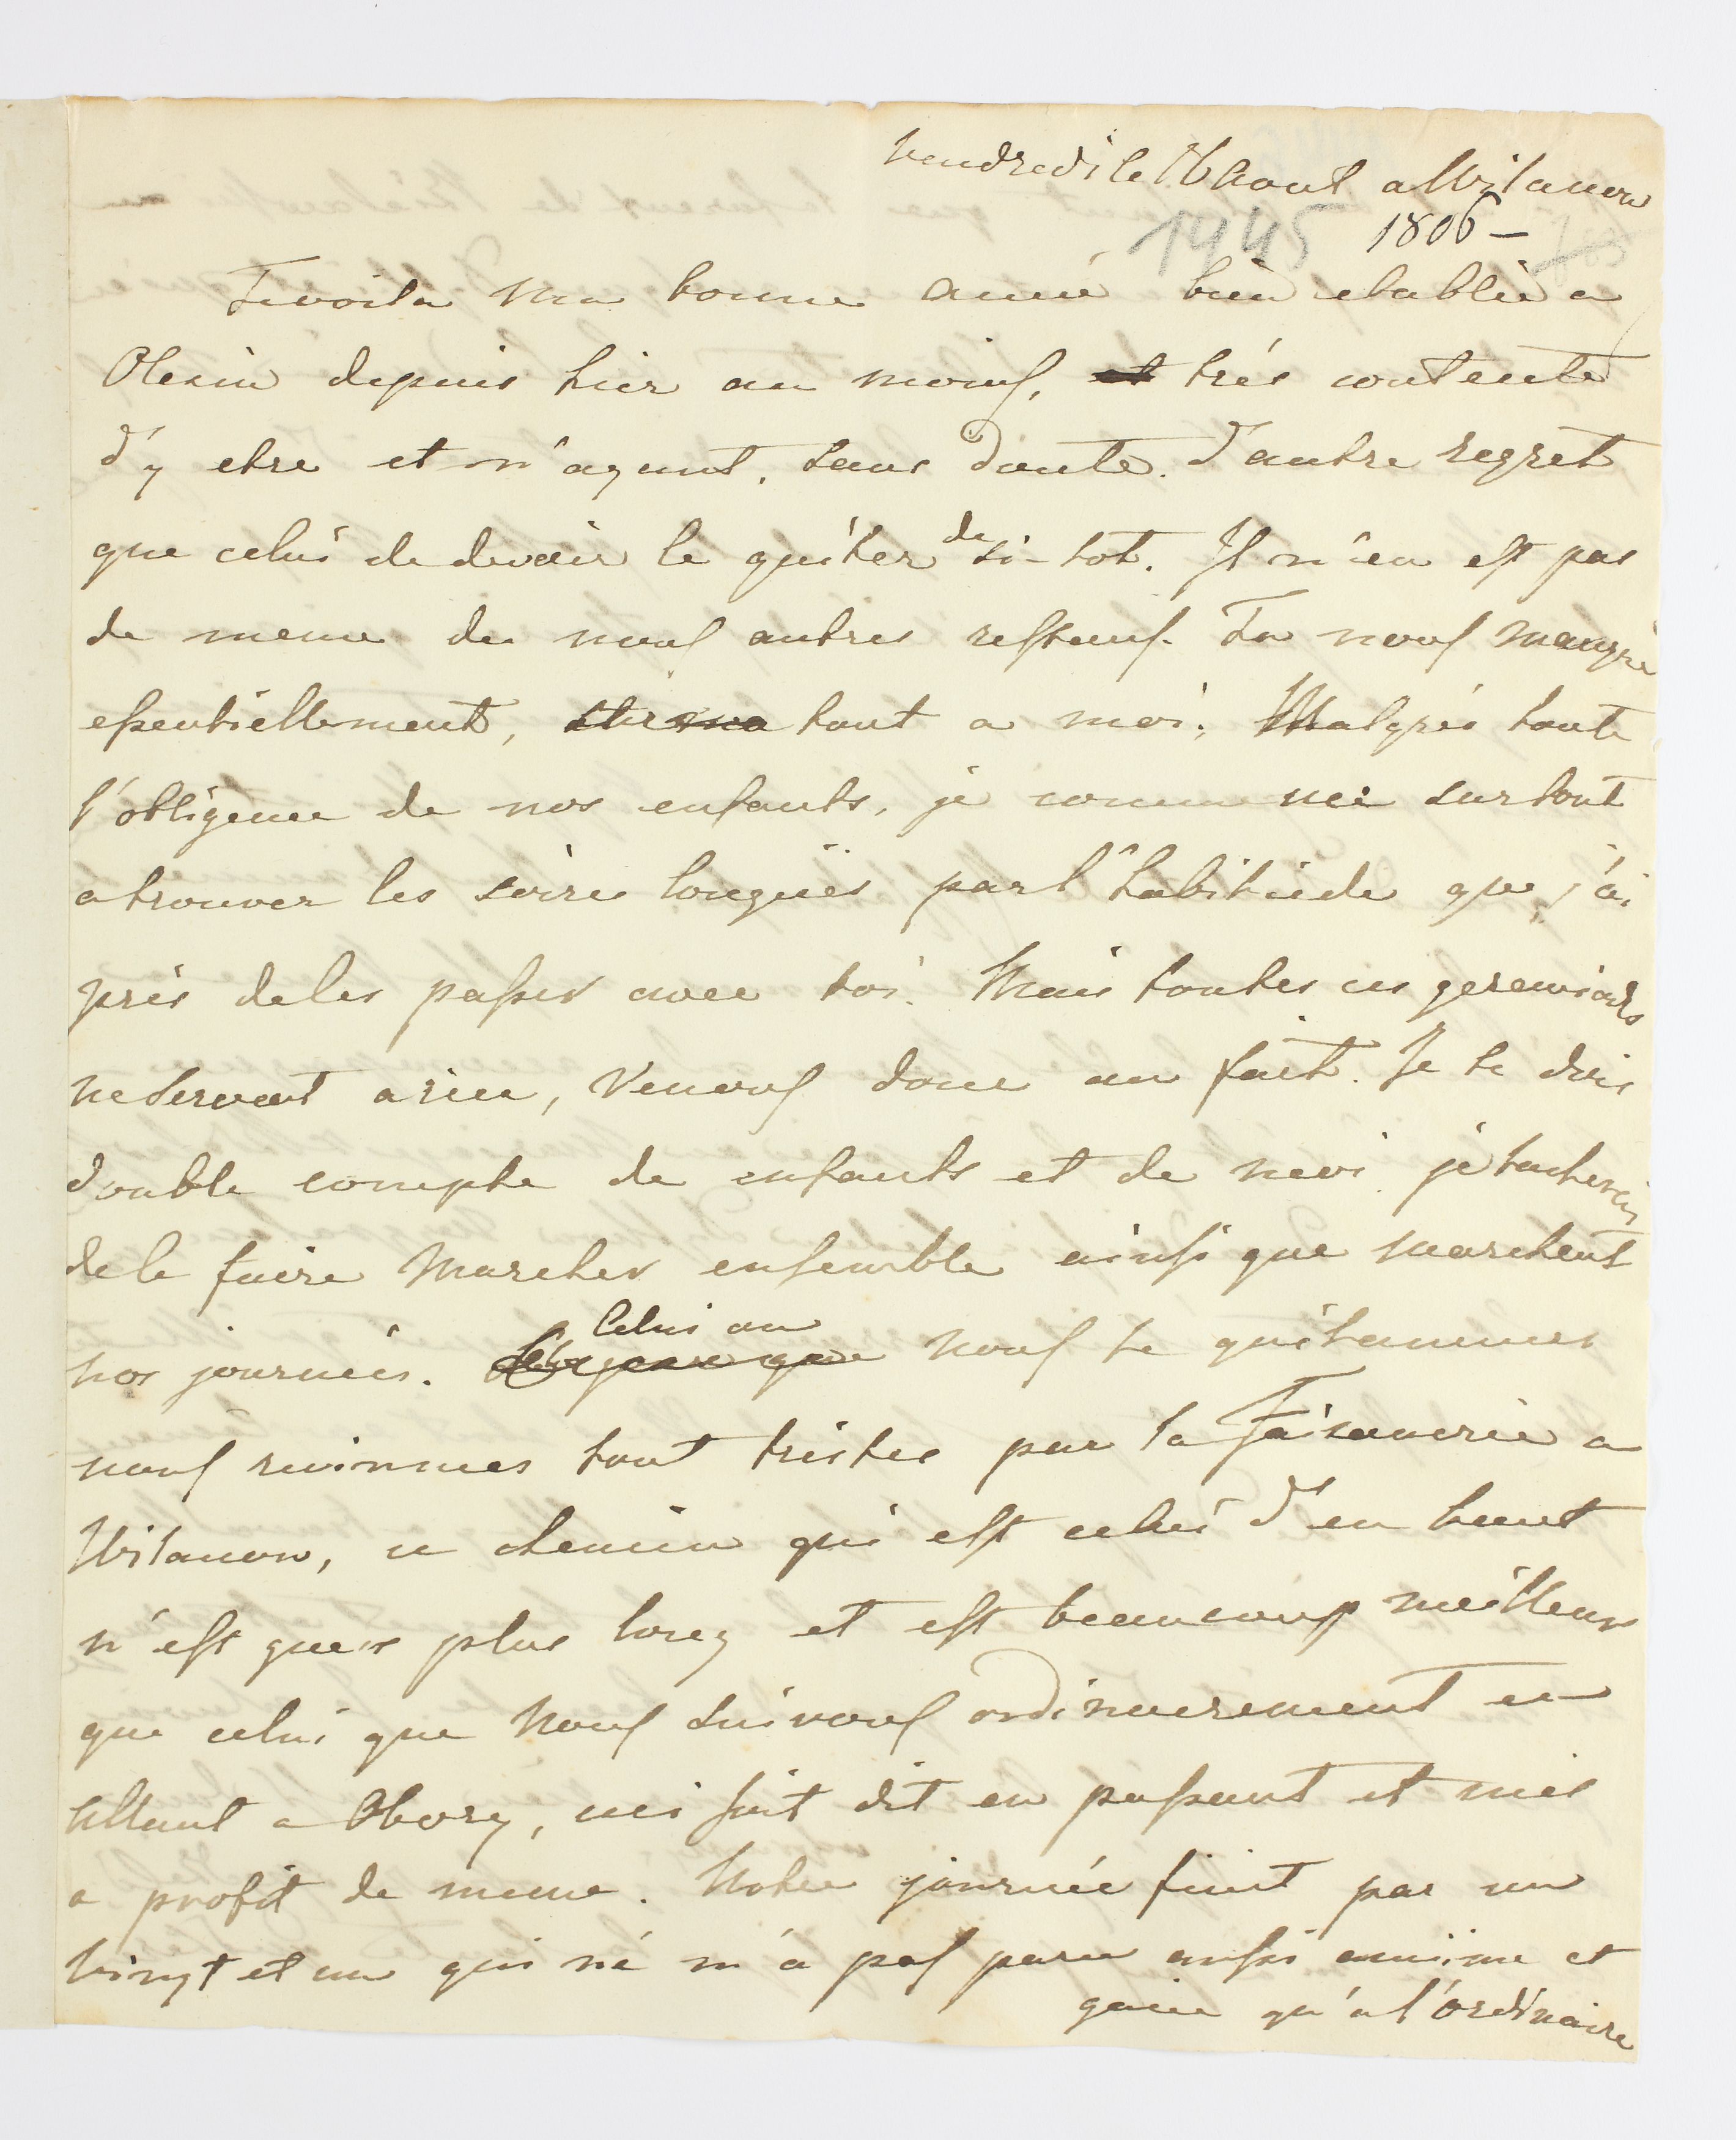 vendredi le 16 Aout a Wilanow
1945 1806 –
Te voila ma bonne amie bien etablie a
Olesin depuis hier au moins, et très contente
d'y etre et n'ayant, sans doute. d'autre regret
que celui de devoir le quiter de si-tot. Il n'en est pas
de meme de nous autres restans. Tu nous manque
essentiellement, tout a moi; Malgrés toute
l'obligence de nos enfants, je commence surtout
a trouver les soires longues par l'habitude que j'ai
pris de les passer avec toi. Mais toutes ces geremiads
ne servent a rien, Venons donc au fait. Je te dois
double compte de enfants et de moi je tacherai
de le faire marcher ensemble ainsi que marchent
nos journées. Celui ou nous te quitammes
nous revinmes tout tristes par la Faisanerie a
Wilanow, ce chemin qui est celui d'en haut
n'est guers plus long et est beaucoup meilleur
que celui que nous suivons ordinairement en
allant a Obory, ceci soit dit en passant et mis
a profit de meme. Notre journée finit par un
vingt et un qui né m'a pas paru aussi anime et
gaie qu'a l'ordinaire